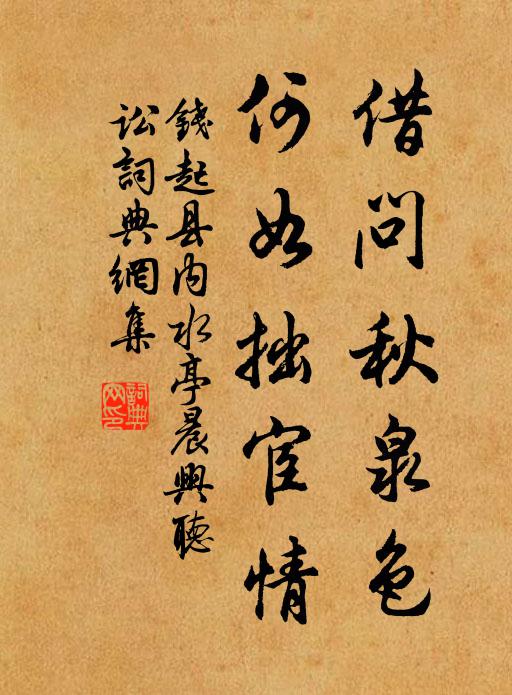 借问秋泉色
何如拙宦情
錢起县内水亭晨興聽
訟詞典網集
詞典
网印